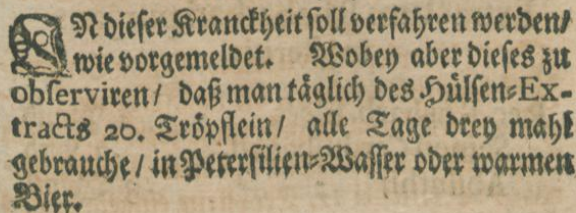 IN dieser Kranckheit soll verfahren werden/
wie vorgemeldet. Wobey aber dieses zu
observiren/ daß man täglich des Hülsen-Ex-
tracts 20. Tröpflein/ alle Tage drey mahl
gebrauche/ in Petersilien-Wasser oder warmen
Bier.